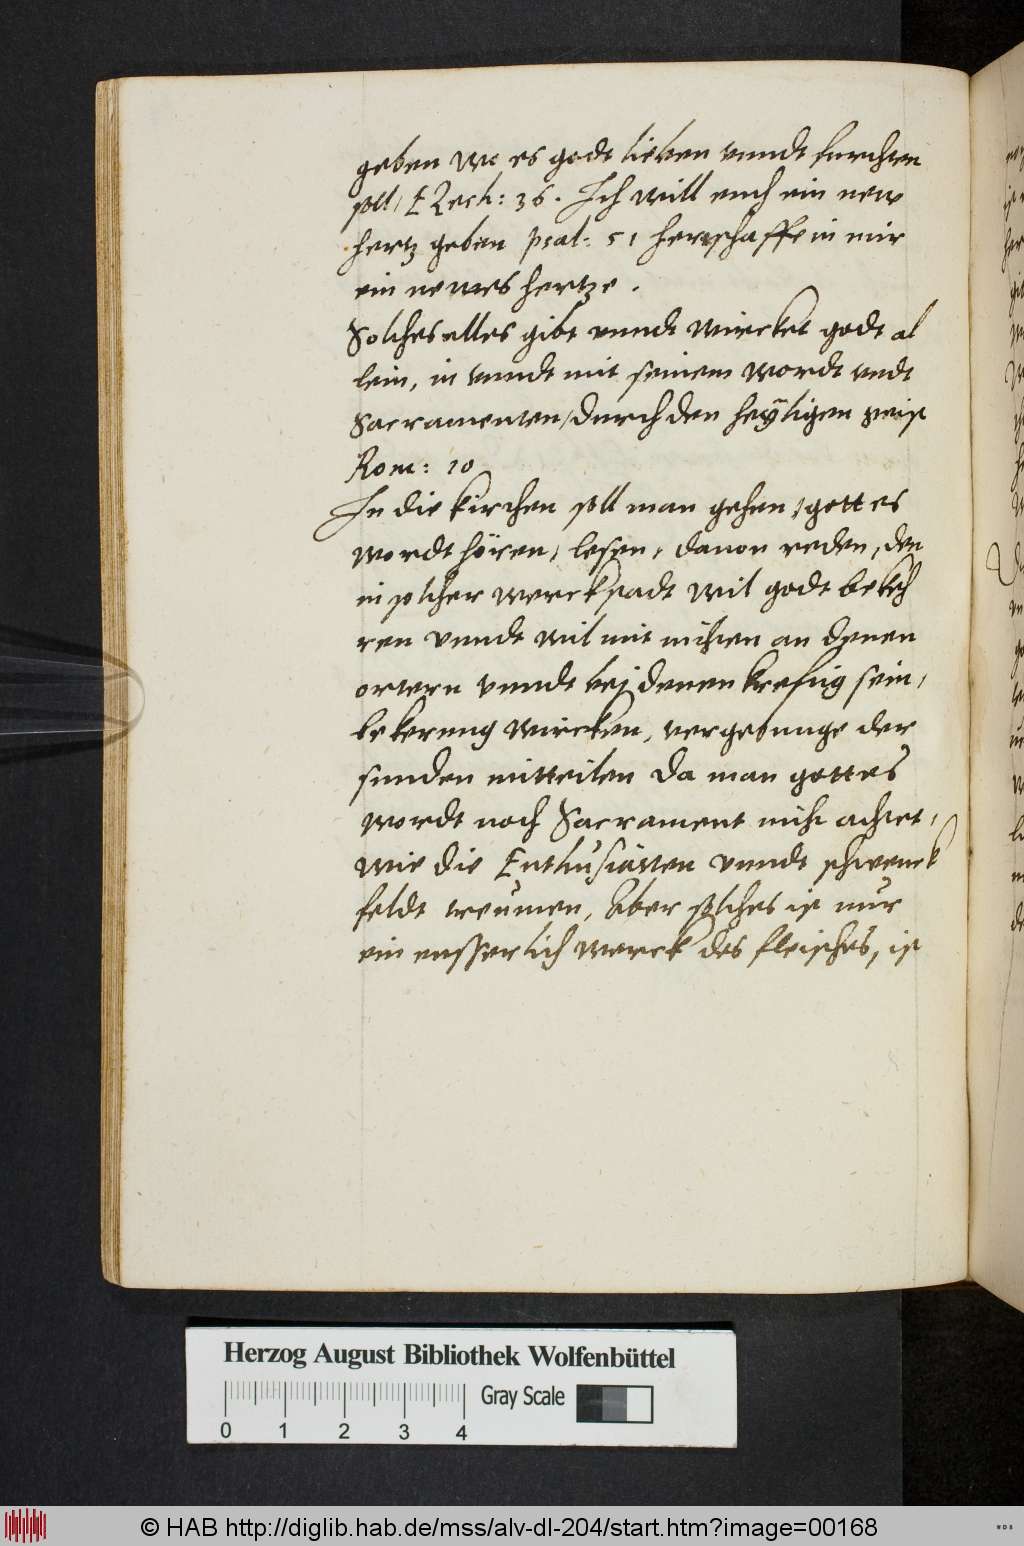 geben wo es godt lieben vnndt furchten
soll, EZech: 36. Ich will euch ein new
hertz geben psal: 51 herr schaffe in mir
ein newes hertze.
Solches alles gibt vnndt wircket godt al
lein, in vnndt mit seinem wordt vndt
Sacramenten, durch den heÿligen geist
Rom: 10
In die kirchen soll man gehen, gottes
wordt hören, lesen, dauon reden, den
in solcher werckstadt wil godt bekeh
ren vnndt wil mit nichten an denen
ortern vnndt bej denen krefftig sein,
bekerung wircken, vergebunge der
sunden mitteilen da man gottes
wordt noch Sacrament nicht achtet,
wie die Enthusiasten vnndt schwenck
feldt treumen, Aber solches ist nur
ein eusserlich werck des fleisches, ist
Herzog August Bibliothek Wolfenbüttel
Gray Scale
0 1 2 3 4
© HAB http://diglib.hab.de/mss/alv-dl-204/start.htm?image=00168